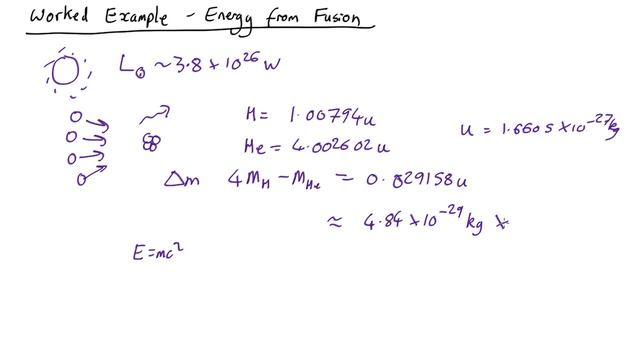 Worked Example - Energy from Fusion
L⊙ ~ 3.8 × 10²⁶ W
H = 1.00794u
u = 1.6605 × 10⁻²⁷kg
He = 4.002602u
Δm 4M_H - M_He = 0.029158u
≈ 4.84 × 10⁻²⁹ kg ×
E=mc²